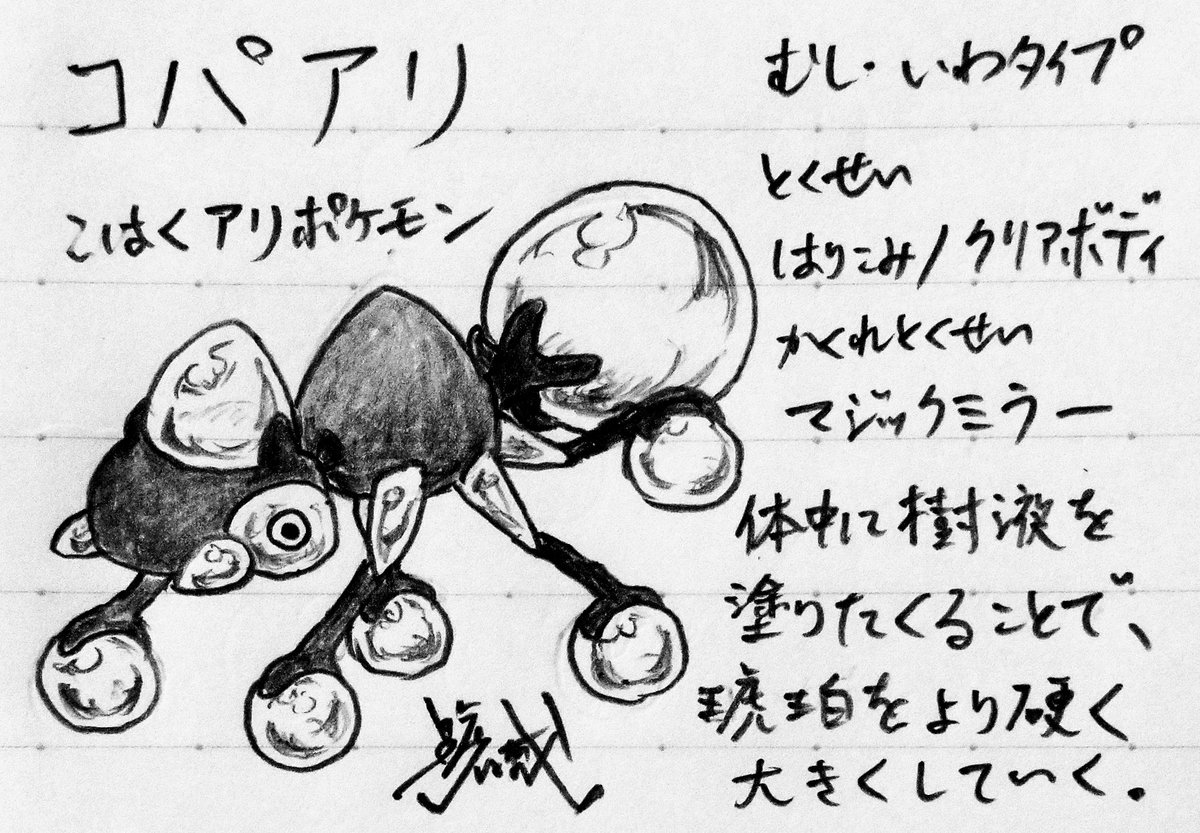 コパアリ
こはくアリポケモン
むし・いわタイプ
とくせい
はりこみ/クリアボディ
かくれとくせい
マジックミラー
体中に樹液を
塗りたくることで、
琥珀をより硬く
大きくしていく。